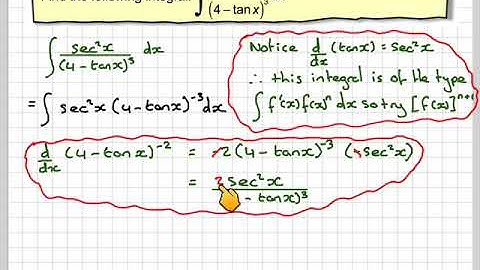 (4 – tan x)³
∫ sec²x / (4 – tan x)³ dx
= ∫ sec²x (4 – tan x)⁻³ dx
Notice d/dx (tan x) = sec²x
∴ this integral is of the type
∫ f'(x) f(x)ⁿ dx so try [f(x)]ⁿ⁺¹
d/dx (4 – tan x)⁻² = -2(4 – tan x)⁻³ (-sec²x)
= 2 sec²x / – tan x)³